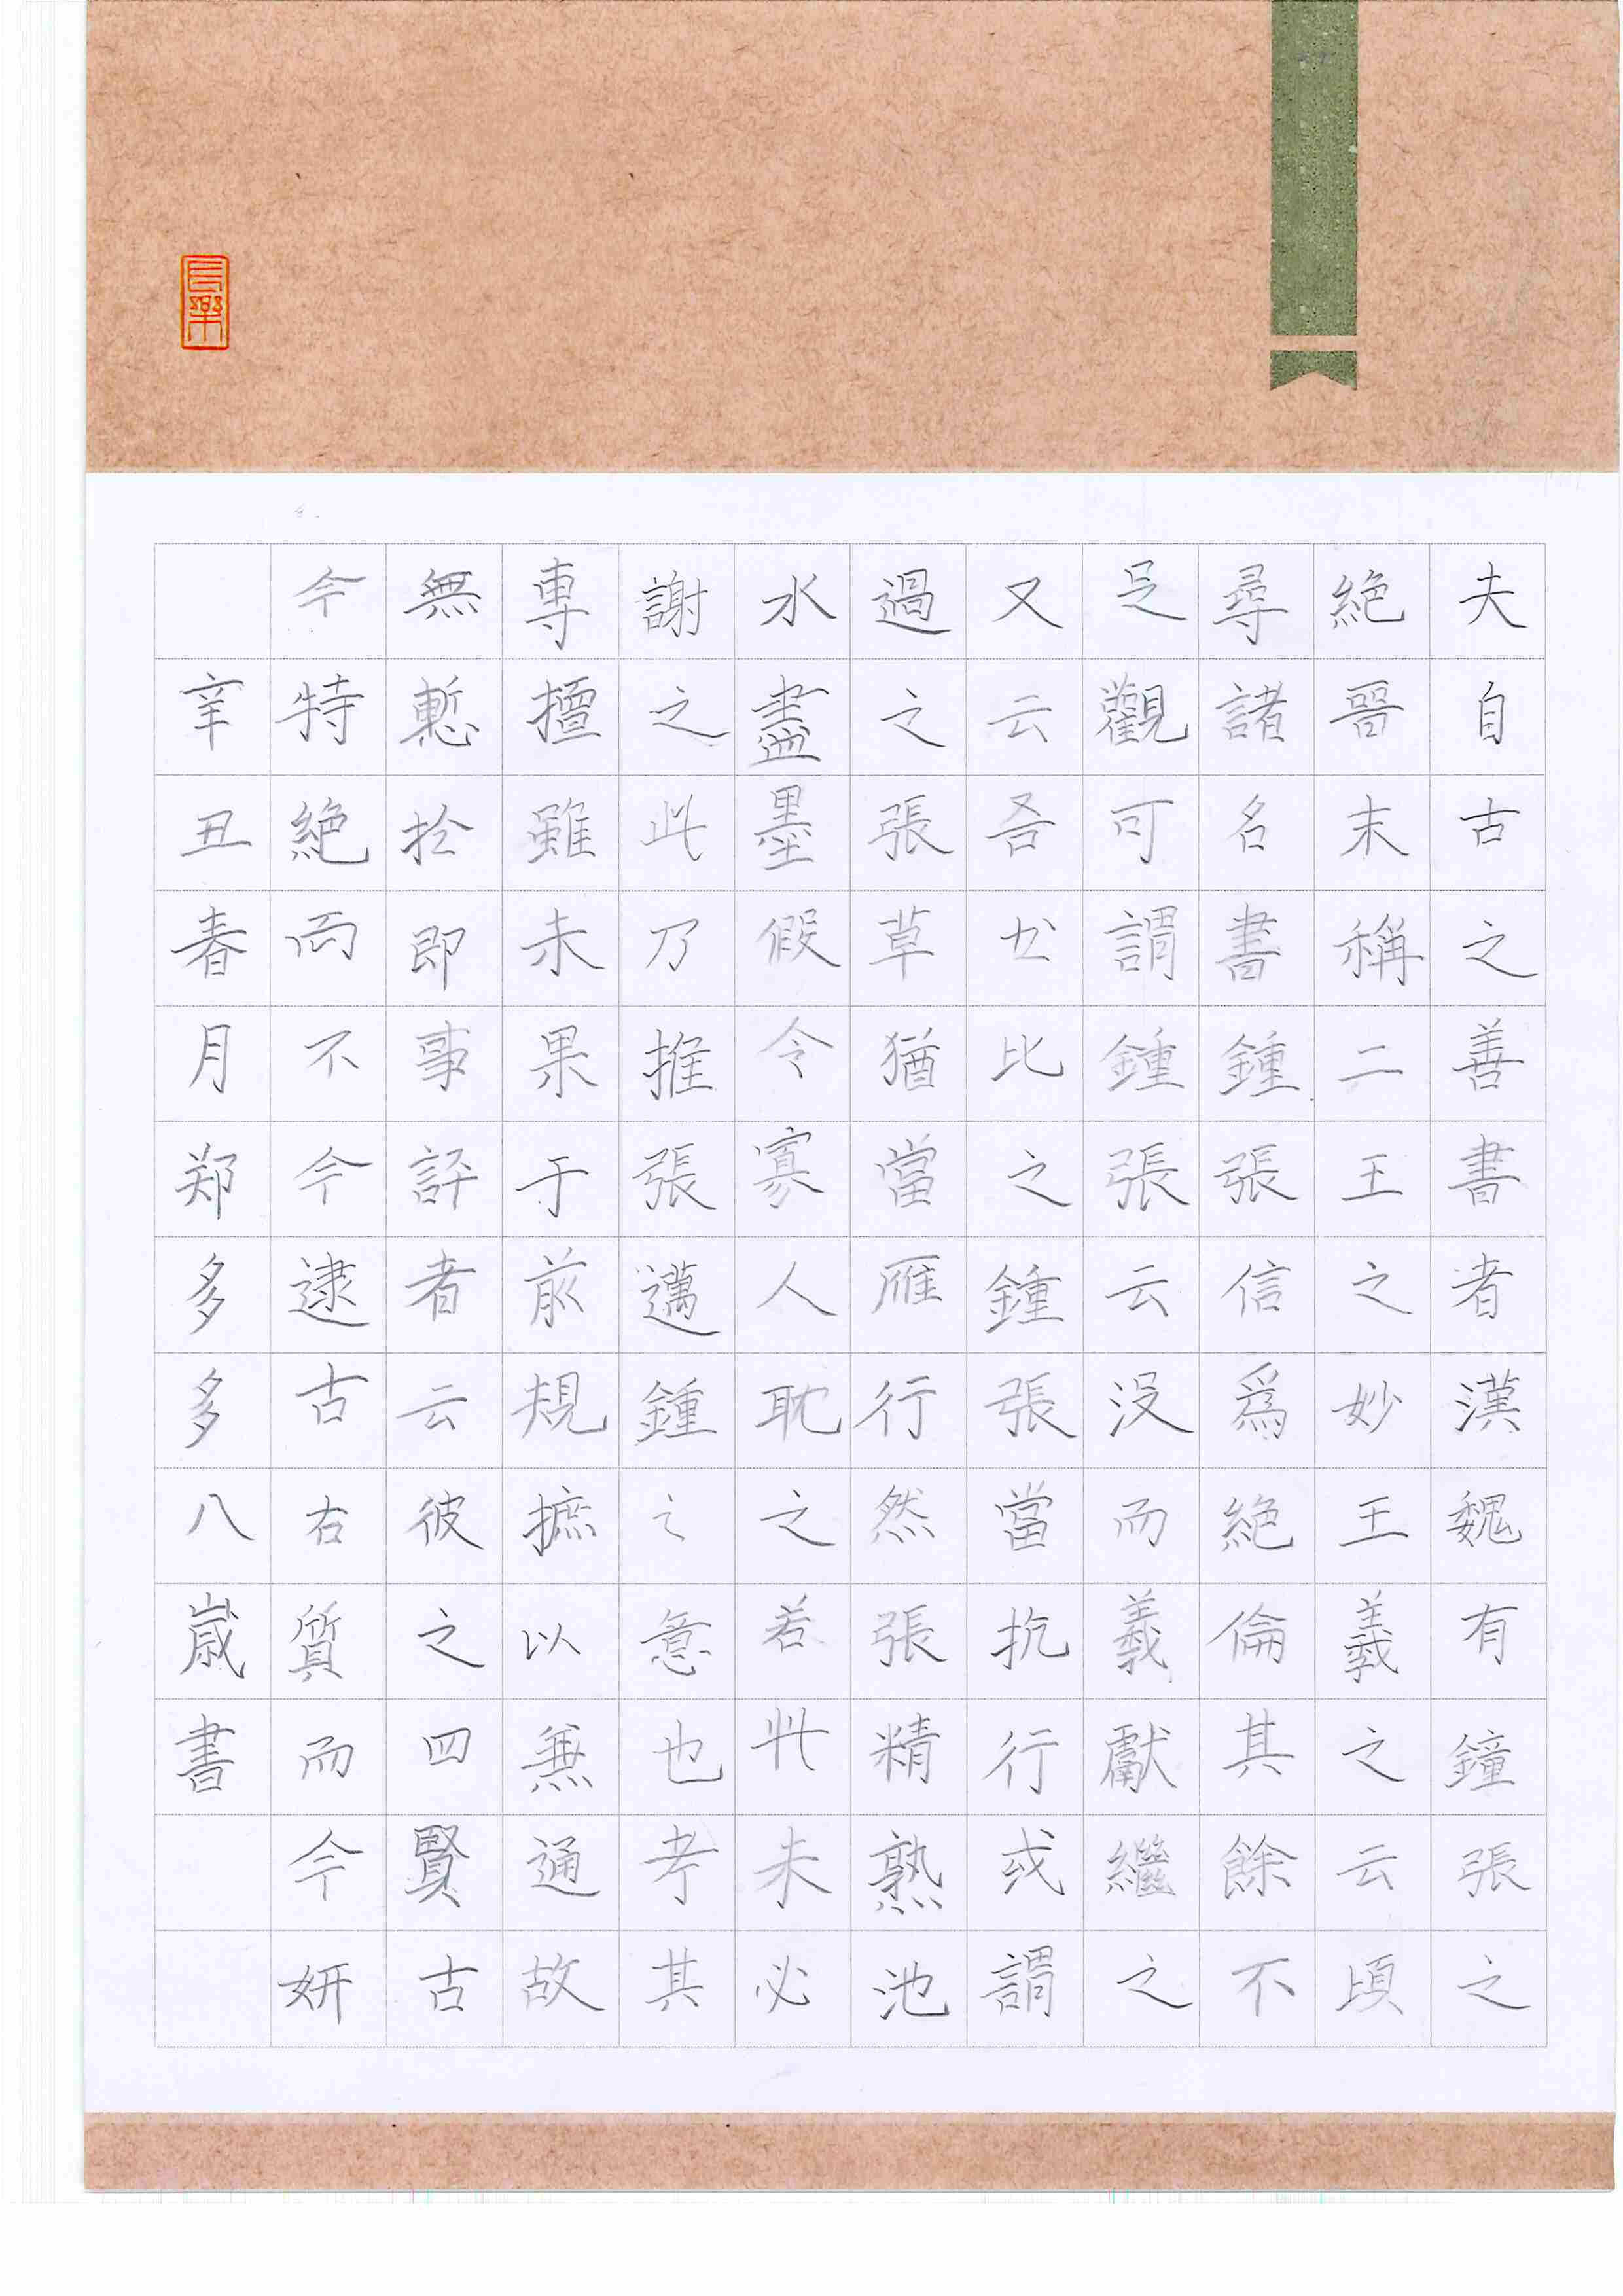 夫自古之善書者漢魏有鐘張之
絶晉末稱二王之妙王羲之云頃
尋諸名書鍾張信爲絶倫其餘不
足觀可謂鍾張云没而羲獻繼之
又云吾书比之鍾張當抗行或謂
過之張草猶當雁行然張精熟池
水盡墨假令寡人耽之若此未必
謝之此乃推張邁鍾之意也考其
專擅雖未果于前規摭以無通故
無慙扵即事評者云彼之四賢古
今特絶而不今逮古右質而今妍
辛丑春月郑多多八歲書